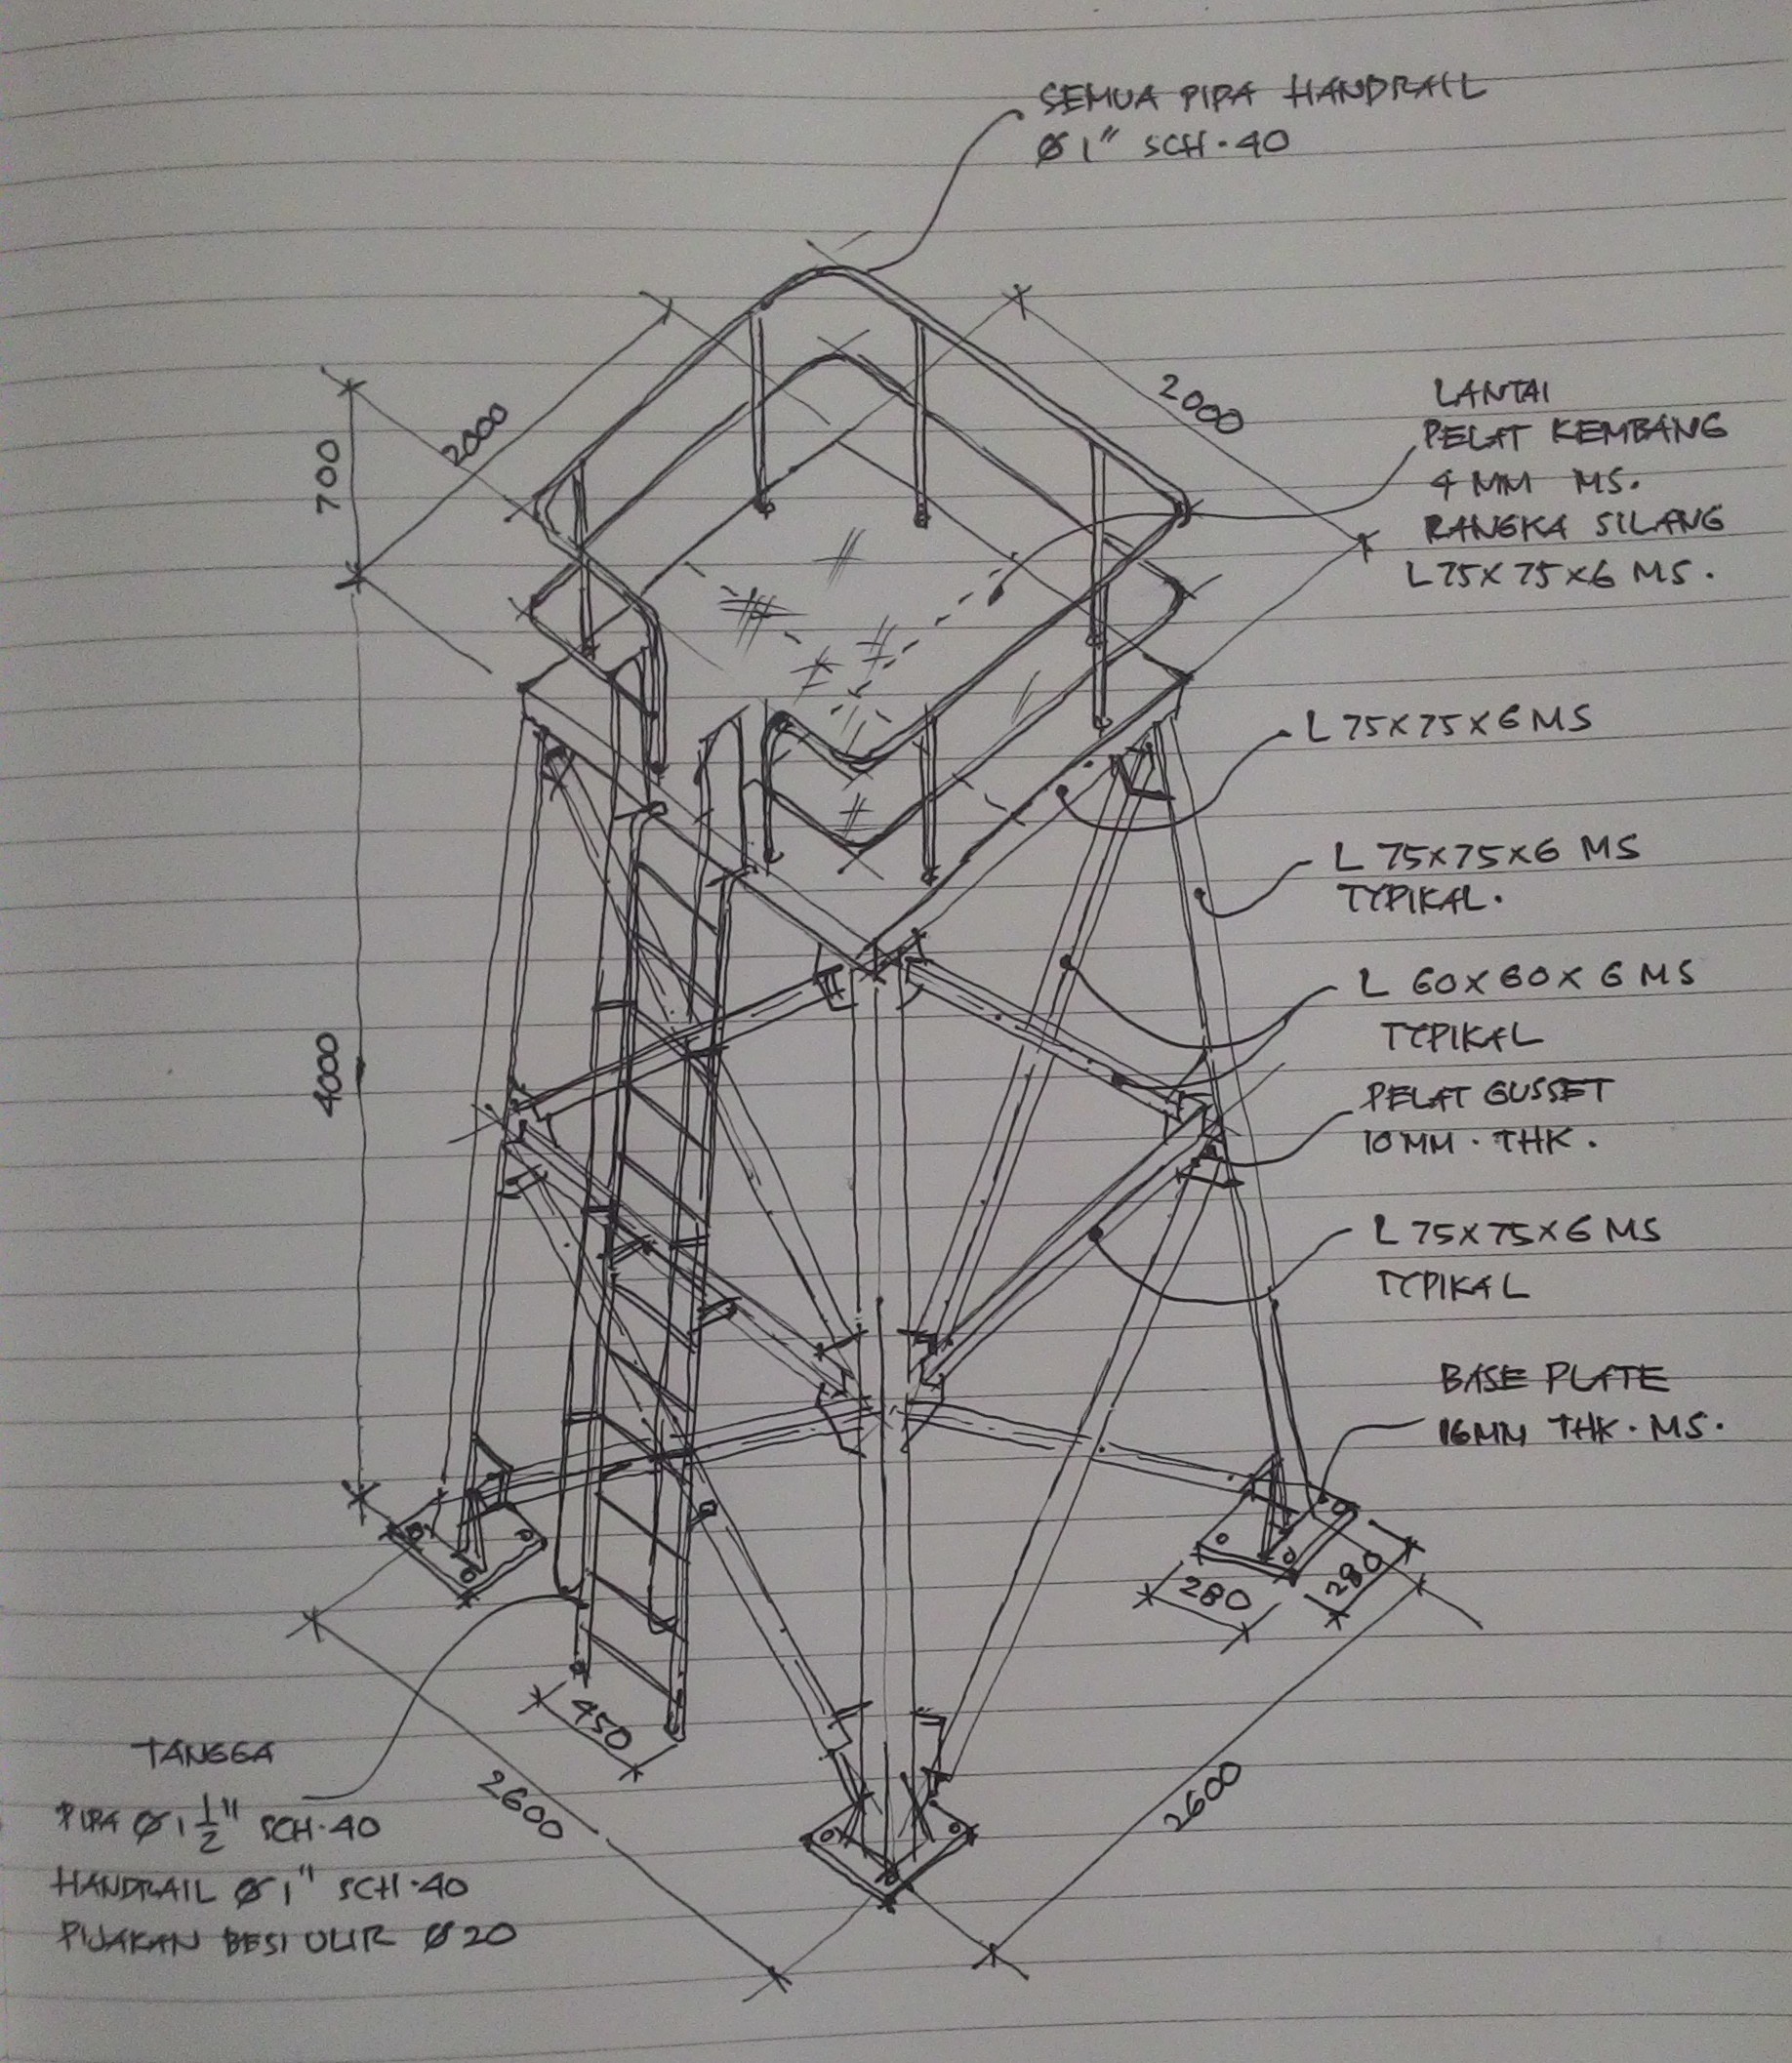 SEMUA PIPA HANDRAIL
Ø 1" SCH.40
2000
2000
700
LANTAI
PELAT KEMBANG
4 MM MS.
RANGKA SILANG
L 75X75X6 MS.
L 75X75X6 MS
L 75X75X6 MS
TYPIKAL.
L 60X60X6 MS
TYPIKAL
4000
PELAT GUSSET
10 MM. THK.
L 75X75X6 MS
TYPIKAL
BASE PLATE
16MM THK. MS.
280
280
450
TANGGA
PIPA Ø 1 1/2" SCH.40
HANDRAIL Ø 1" SCH.40
PIJAKAN BESI ULIR Ø 20
2600
2600